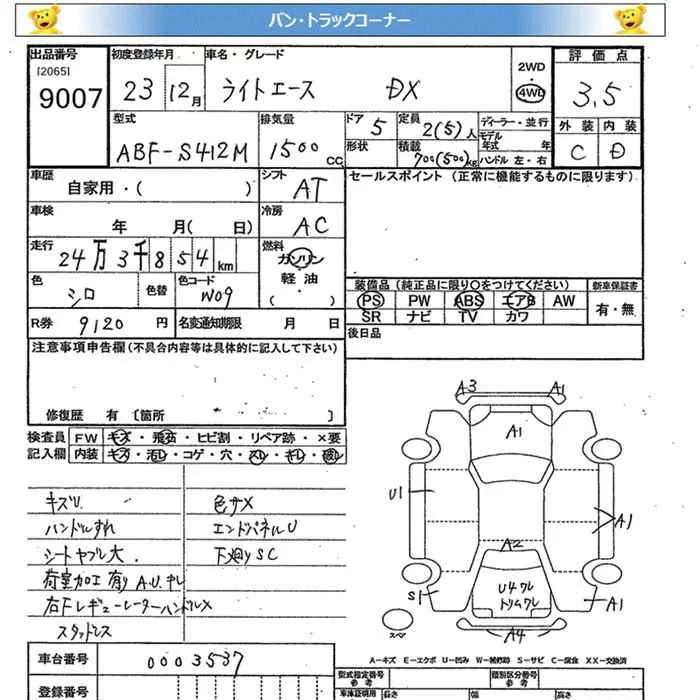 バン・トラックコーナー
出品番号
[2065]
9007
初度登録年月
23 12月
車名・グレード
ライトエース DX
2WD
・
4WD
評価点
3.5
外装 内装
C D
型式
ABF-S412M
排気量
1500 CC
ドア 5
形状
定員 2(5)人
積載 700(500)kg
ディーラー・並行
モデル
年式 年
ハンドル 左・右
車歴
自家用・( )
シフト
AT
車検
年 月( 日)
冷房
AC
走行
24万3千854km
燃料
ガソリン
・
軽油
( ・ )
色
シロ
色替
色コード
W09
R券 9120円
名変通知期限 月 日
セールスポイント (正常に機能するものに限ります)
装備品 (純正品に限り○をつけてください)
新車保証書
PS PW ABS エアB AW
SR ナビ TV カワ
有・無
後日品
注意事項申告欄(不具合内容等は具体的に記入して下さい)
修復歴 有 〔箇所 〕
検査員
記入欄
FW キズ・飛石・ヒビ割・リペア跡・×要
内装 キズ・汚レ・コゲ・穴・スレ・キレ・破レ
キズU
ハンドルすれ
シートヤブレ大
荷室加工有り A.U.キレ
右Fレギュレーターハンドル×
スタッドレス
色サメ
エンドパネルU
下廻りSC
A3 A1
A1
U1
A1
A2
U4ワレ
トリムワレ
S1
A1
A4
スペア
A-キズ E-エクボ U-凹み W-補修跡 S-サビ C-腐食 XX-交換済
車台番号
0003537
登録番号
型式指定番号
参考
類別区分番号
参考
車庫証明用
長さ
幅
高さ